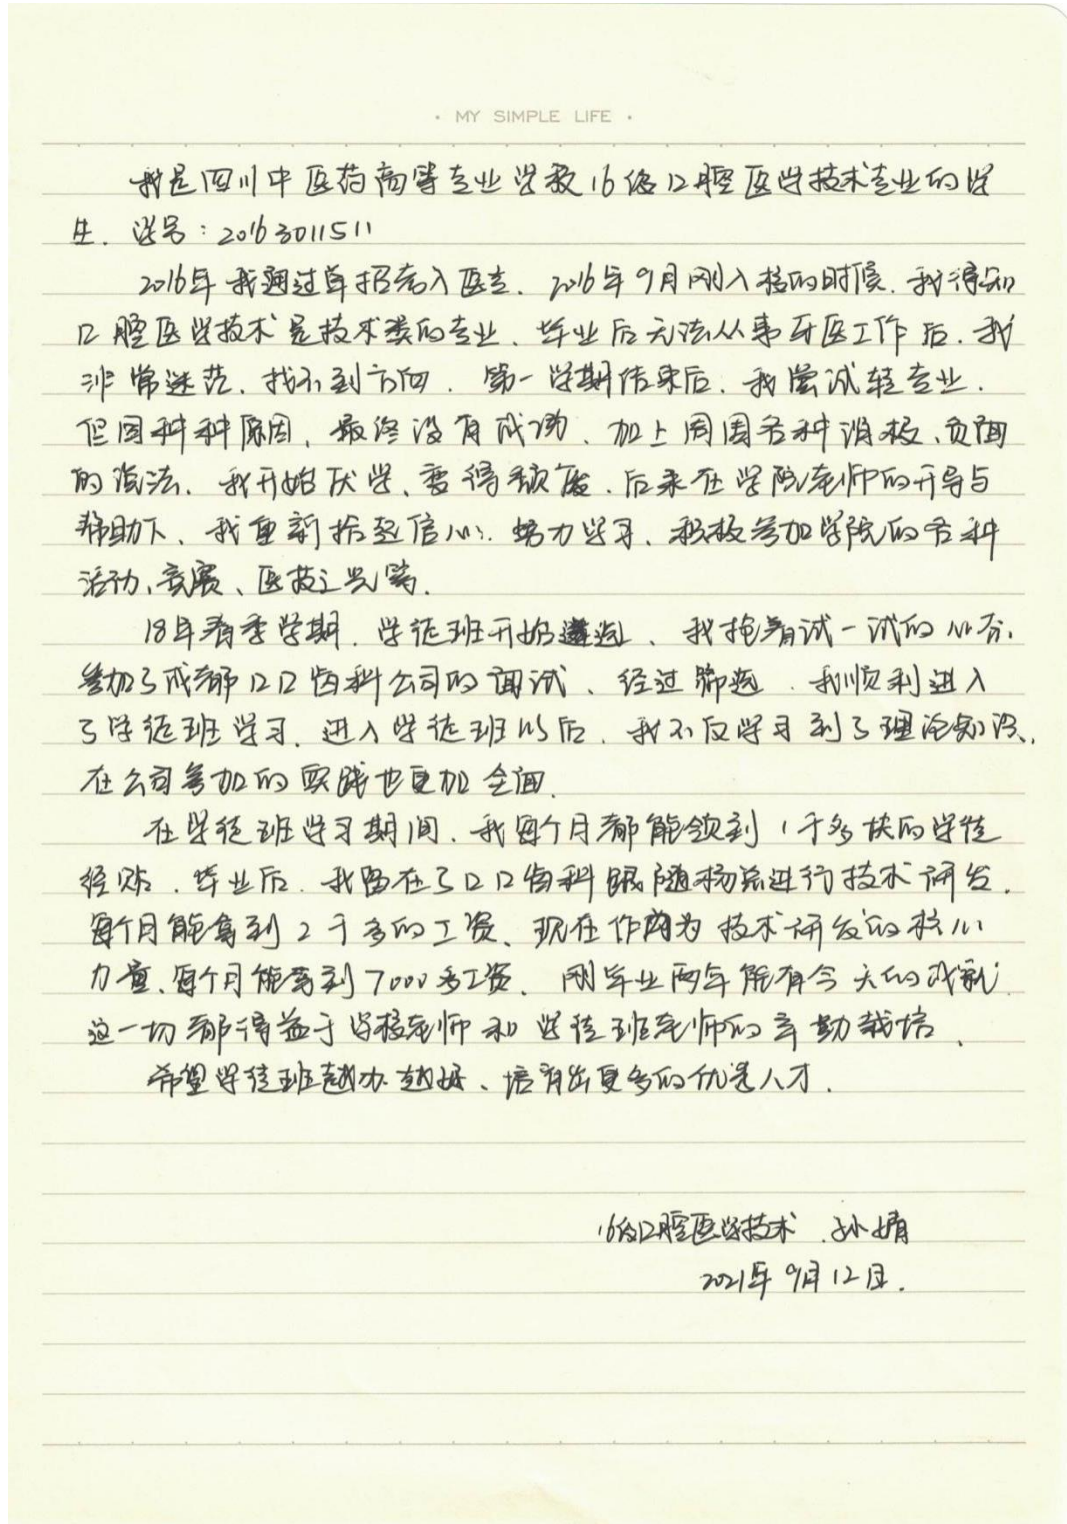 · MY SIMPLE LIFE ·
我是四川中医药高等专业学校16级口腔医学技术专业的学
生.学号:20163011511
2016年我通过单招考入医专.2016年9月刚入校的时候.我得知
口腔医学技术是技术类的专业、毕业后无法从事牙医工作后.我
非常迷茫.找不到方向.第一学期结束后.我尝试转专业.
但因种种原因、最终没有成功、加上周围各种消极、负面
的说法、我开始厌学、变得颓废.后来在学院老师的开导与
帮助下、我重新拾起信心.努力学习、积极参加学院的各种
活动、竞赛、医技之光等.
18年春季学期.学徒班开始遴选、我抱着试一试的心态.
参加了成都口口齿科公司的面试、经过筛选.我顺利进入
了学徒班学习.进入学徒班以后.我不仅学习到了理论知识.
在公司参加的实践也更加全面.
在学徒班学习期间.我每个月都能领到1千多块的学徒
经贴.毕业后.我留在了口口齿科跟随杨总进行技术研发.
每个月能拿到2千多的工资、现在作为技术研发的核心
力量、每个月能拿到7000多工资.刚毕业两年能有今天的成就.
这一切都得益于学校老师和学徒班老师的辛勤栽培.
希望学徒班越办越好、培育出更多的优秀人才.
16级口腔医学技术.孙婧
2021年9月12日.